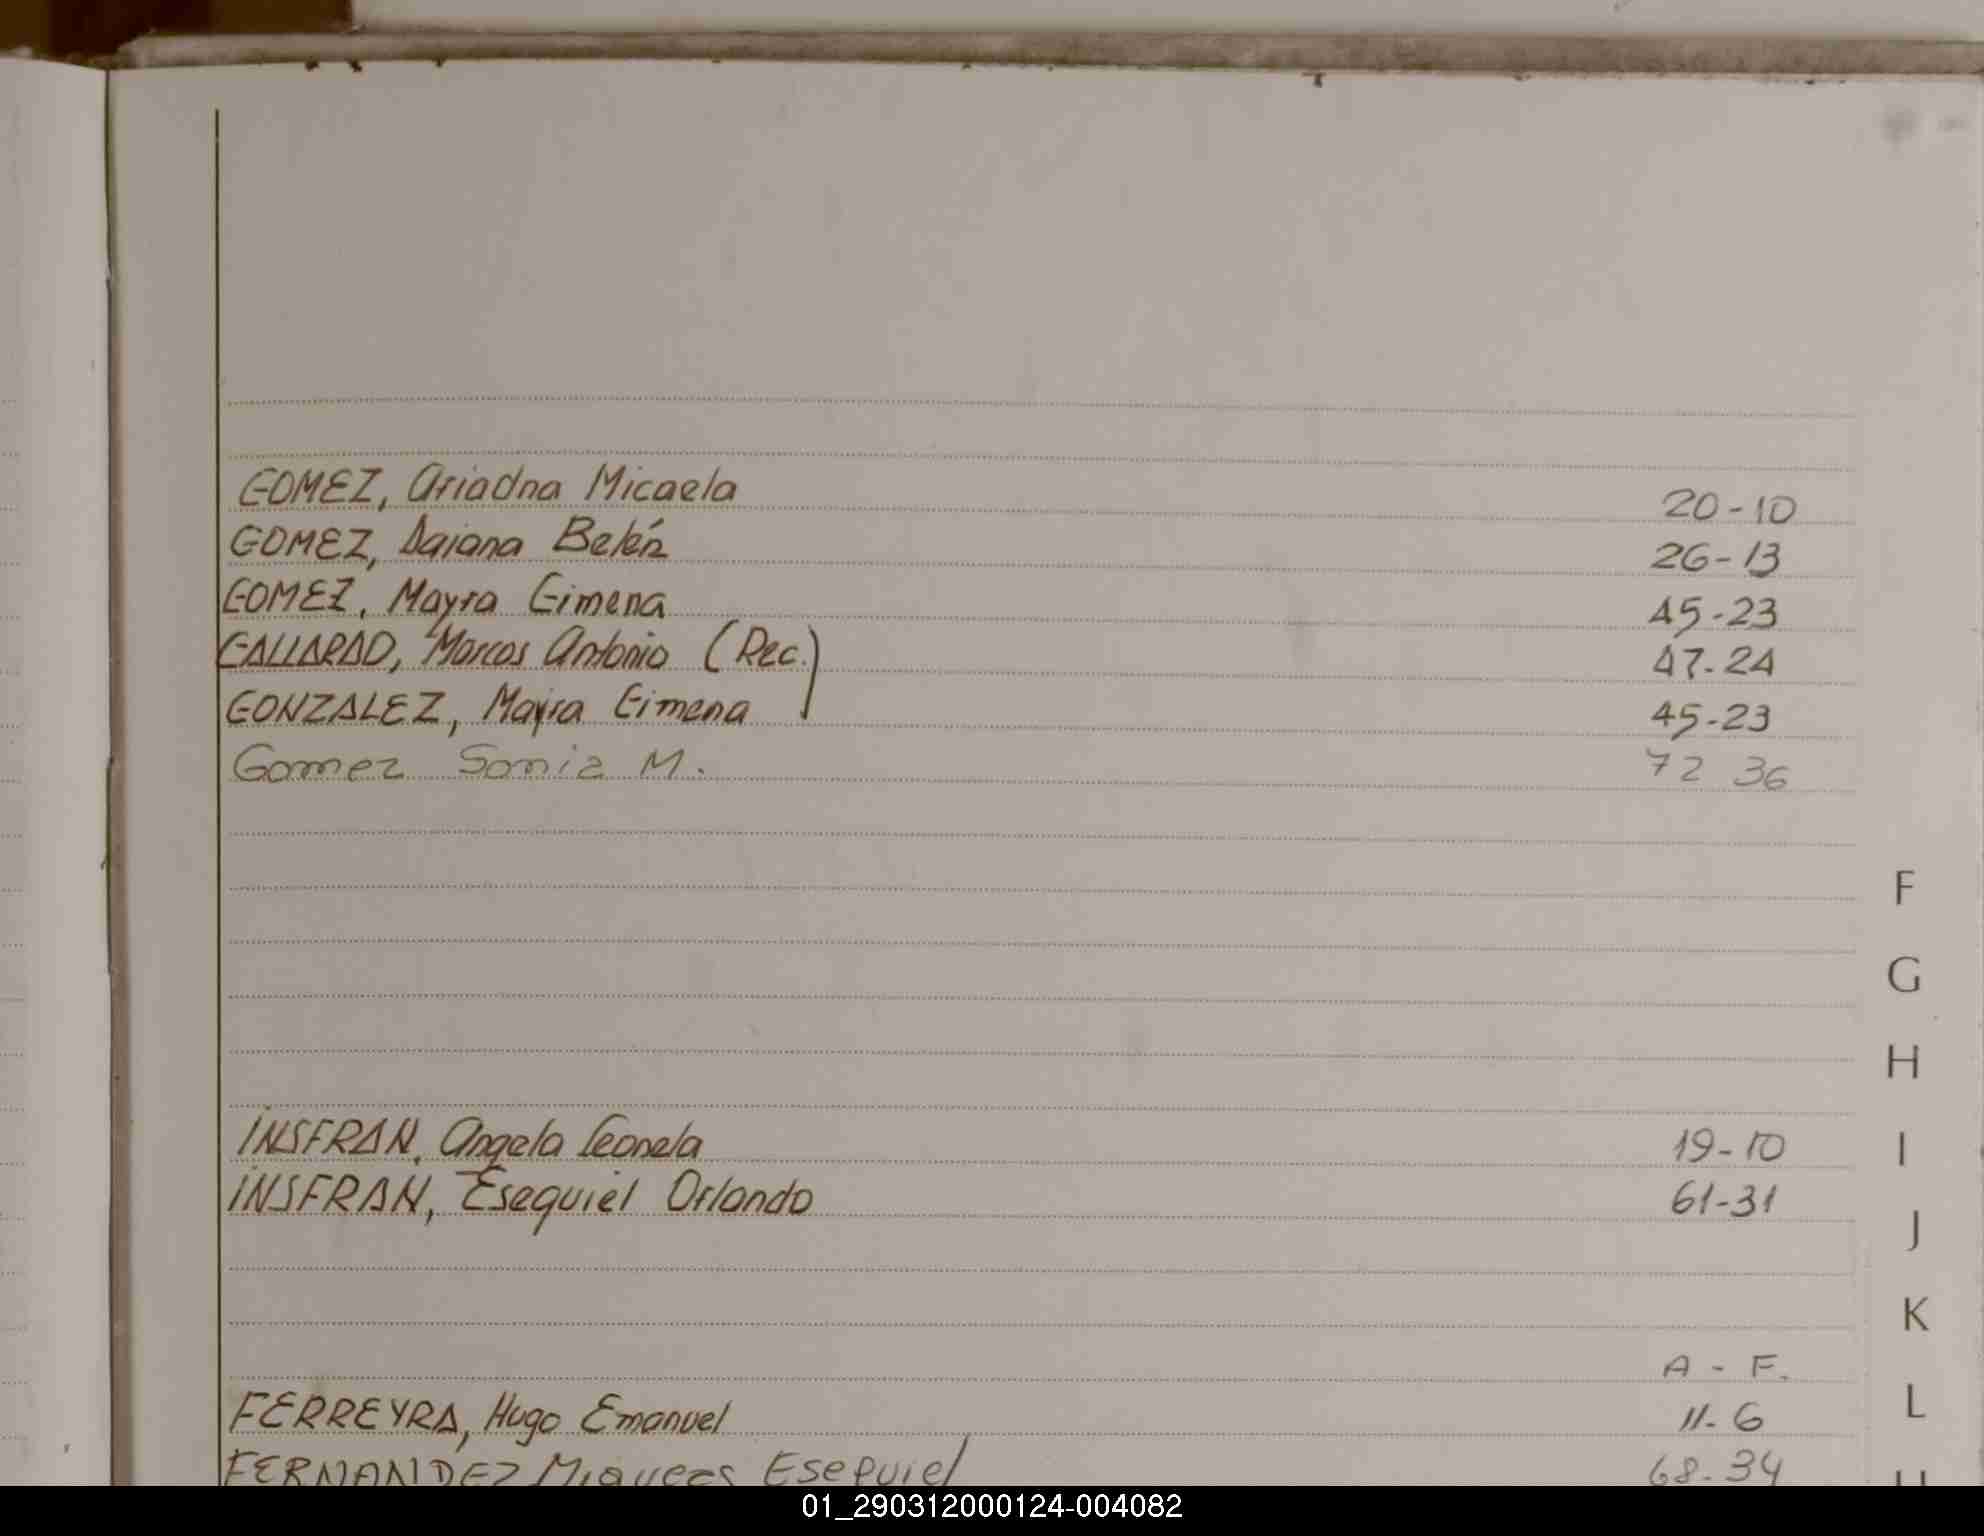 GOMEZ, Ariadna Micaela 20-10
GOMEZ, Daiana Belén 26-13
GOMEZ, Mayra Gimena 45-23
GALLARDO, Marcos Antonio (Rec.) 47-24
GONZALEZ, Mayra Gimena 45-23
Gomez Sonia M. 72 36
F
G
H
INSFRAN, Angela Leonela 19-10 I
INSFRAN, Esequiel Orlando 61-31
J
K
A - F.
FERREYRA, Hugo Emanuel 11-6 L
FERNANDEZ Miqueas Esequiel 68-34
01_290312000124-004082